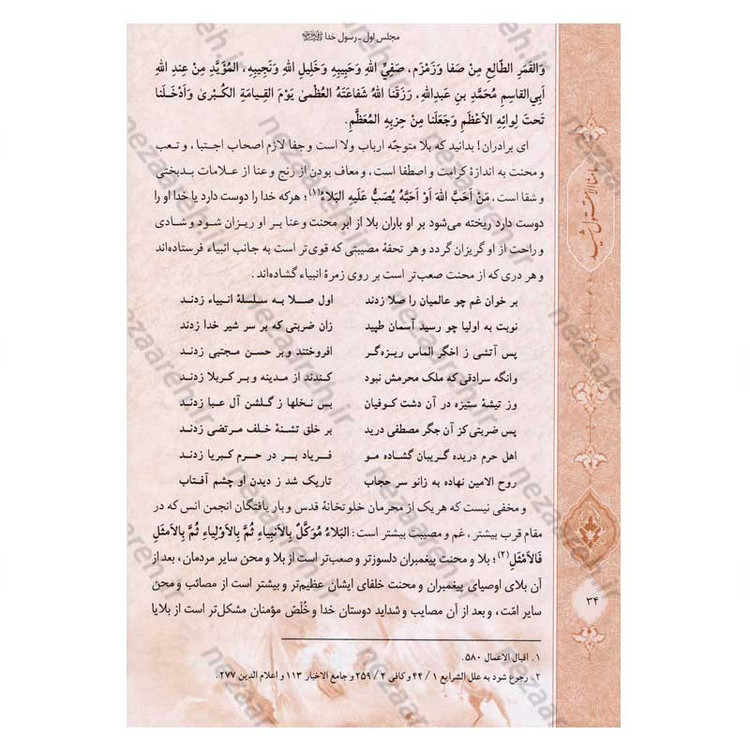 مجلس اول ـ رسول خدا ﷺ
وَالقَمَرِ الطّالِعِ مِنْ صَفا وَزَمْزَم، صَفِيِّ اللهِ وَحَبِيبِهِ وَخَلِيلِ اللهِ وَنَجِيبِهِ، المُؤَيَّدِ مِنْ عِندِ اللهِ
أَبِي‌القاسِمِ مُحَمَّدِ بنِ عَبدِاللهِ، رَزَقَنا اللهُ شَفاعَتَهُ العُظمىٰ يَوْمَ القِيامَةِ الكُبْرىٰ وَأَدْخَلَنا
تَحتَ لِوائِهِ الأَعْظَمِ وَجَعَلَنا مِنْ حِزبِهِ المُعَظَّمِ.
ای برادران! بدانید که بلا متوجّه ارباب ولا است و جفا لازم اصحاب اجتبا، و تعب
و محنت به اندازهٔ کرامت و اصطفا است، و معاف بودن از رنج و عنا از علامات بدبختی
و شقا است، مَنْ أَحَبَّ اللهَ أَوْ أَحَبَّهُ يُصَبُّ عَلَيهِ البَلاءُ(۱)؛ هرکه خدا را دوست دارد یا خدا او را
دوست دارد ریخته می‌شود بر او باران بلا از ابر محنت و عنا بر او ریزان شود و شادی
و راحت از او گریزان گردد و هر تحفهٔ مصیبتی که قوی‌تر است به جانب انبیاء فرستاده‌اند
و هر دری که از محنت صعب‌تر است بر روی زمرهٔ انبیاء گشاده‌اند.
بر خوان غم چو عالمیان را صلا زدند اول صلا به سلسلهٔ انبیاء زدند
نوبت به اولیا چو رسید آسمان طپید زان ضربتی که بر سر شیر خدا زدند
پس آتشی ز اخگر الماس ریزه‌گر افروختند و بر حسن مجتبی زدند
وانگه سرادقی که ملک محرمش نبود کندند از مدینه و بر کربلا زدند
وز تیشهٔ ستیزه در آن دشت کوفیان بس نخلها ز گلشن آل عبا زدند
پس ضربتی کز آن جگر مصطفی درید بر خلق تشنهٔ خلف مرتضی زدند
اهل حرم دریده گریبان گشاده مو فریاد بر در حرم کبریا زدند
روح الامین نهاده به زانو سر حجاب تاریک شد ز دیدن او چشم آفتاب
و مخفی نیست که هر یک از محرمان خلوتخانهٔ قدس و بار یافتگان انجمن انس که در
مقام قرب بیشتر، غم و مصیبت بیشتر است: البَلاءُ مُوَكَّلٌ بِالأَنبِياءِ ثُمَّ بِالأَولِياءِ ثُمَّ بِالأَمثَلِ
فَالأَمْثَلِ(۲)؛ بلا و محنت پیغمبران دلسوزتر و صعب‌تر است از بلا و محن سایر مردمان، بعد از
آن بلای اوصیای پیغمبران و محنت خلفای ایشان عظیم‌تر و بیشتر است از مصائب و محن
سایر امّت، و بعد از آن مصایب و شداید دوستان خدا و خُلَّصِ مؤمنان مشکل‌تر است از بلایا
۱. اقبال الاعمال ۵۸۰.
۲. رجوع شود به علل الشرایع ۱ / ۴۴ و کافی ۲ / ۲۵۹ و جامع الاخبار ۱۱۳ و اعلام الدین ۲۷۷.
۳۴
nezaareh.ir